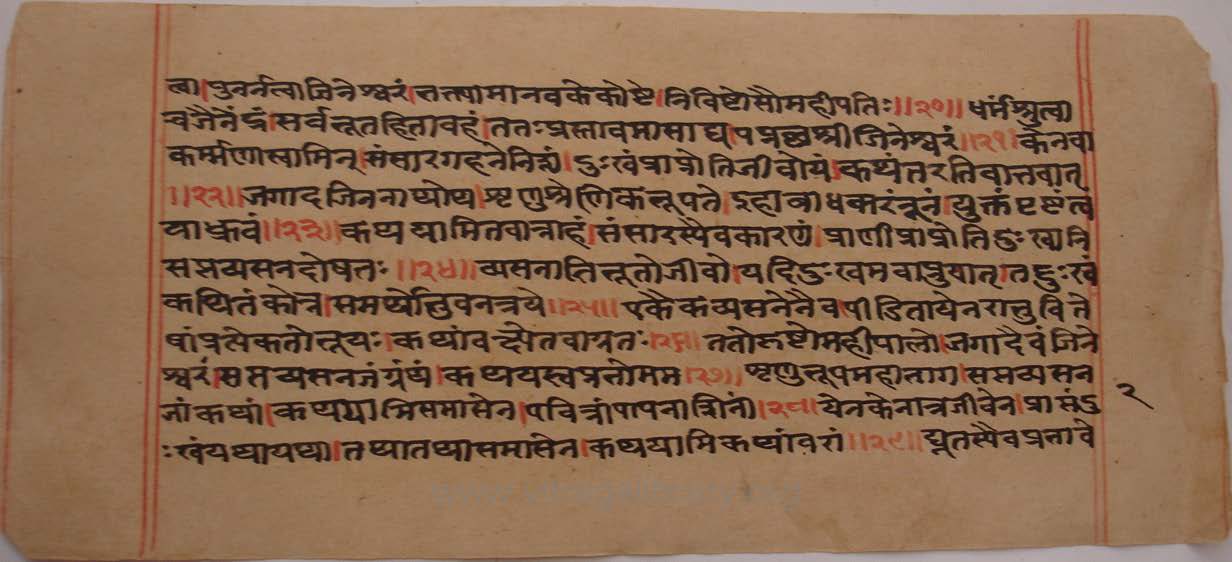 त्वा।पुनर्नत्वाजिनेश्वरं।तत्त्यामानवकेकोष्टे।निविष्टोसौमहीपतिः॥२०॥धर्मंश्रुत्वा
चजैनेंद्रं।सर्वभूतहितावहं।ततःप्रस्तावमासाद्य।पप्रछश्रीजिनेश्वरं॥२१॥केनवा
कर्म्मणास्वामिन्।संसारगहनेनित्यं।दुःखंप्राप्नोतिजीवोयं।कथंतरतिवात्तवात्
॥२२॥जगादजिननाथोथ।शृणुश्रेणिकभूपते।महाबाधकरंनूनं।युक्तंष्टष्टंत्व
याध्रुवं॥२३॥कथयामितवात्राहं।संसारस्यैवकारणं।प्राणीप्राप्नोतिदुःखानि
सप्तव्यसनदोषतः॥२४॥व्यसनातिभूतोजीवो।यदिदुःखमवाप्नुयात्।तद्दुःखं
कथितंकोत्र।समर्थोभुवनत्रये॥२५॥एकैकव्यसनेनैव।पीडितायेनराभुविते
षांप्रत्येकतोभूयः।कथांवक्ष्येतवाग्रतः॥२६॥ततोरुष्टोमहीपालो।जगादैवंजिने
श्वरं।सप्तव्यसनजंग्रंथं।कथयस्वप्रतोमम॥२७॥शृणुभूपमहाभाग।सप्तव्यसन
नांकथां।कथयामिसमासेन।पवित्रांपापनाशिनीं॥२८॥येनकेनात्रजीवेन।प्राप्तंदु
२
ःखंयथायथा।तथातथासमासेन।कथयामिकथांवरां॥२९॥द्यूतस्यैवप्रभावे